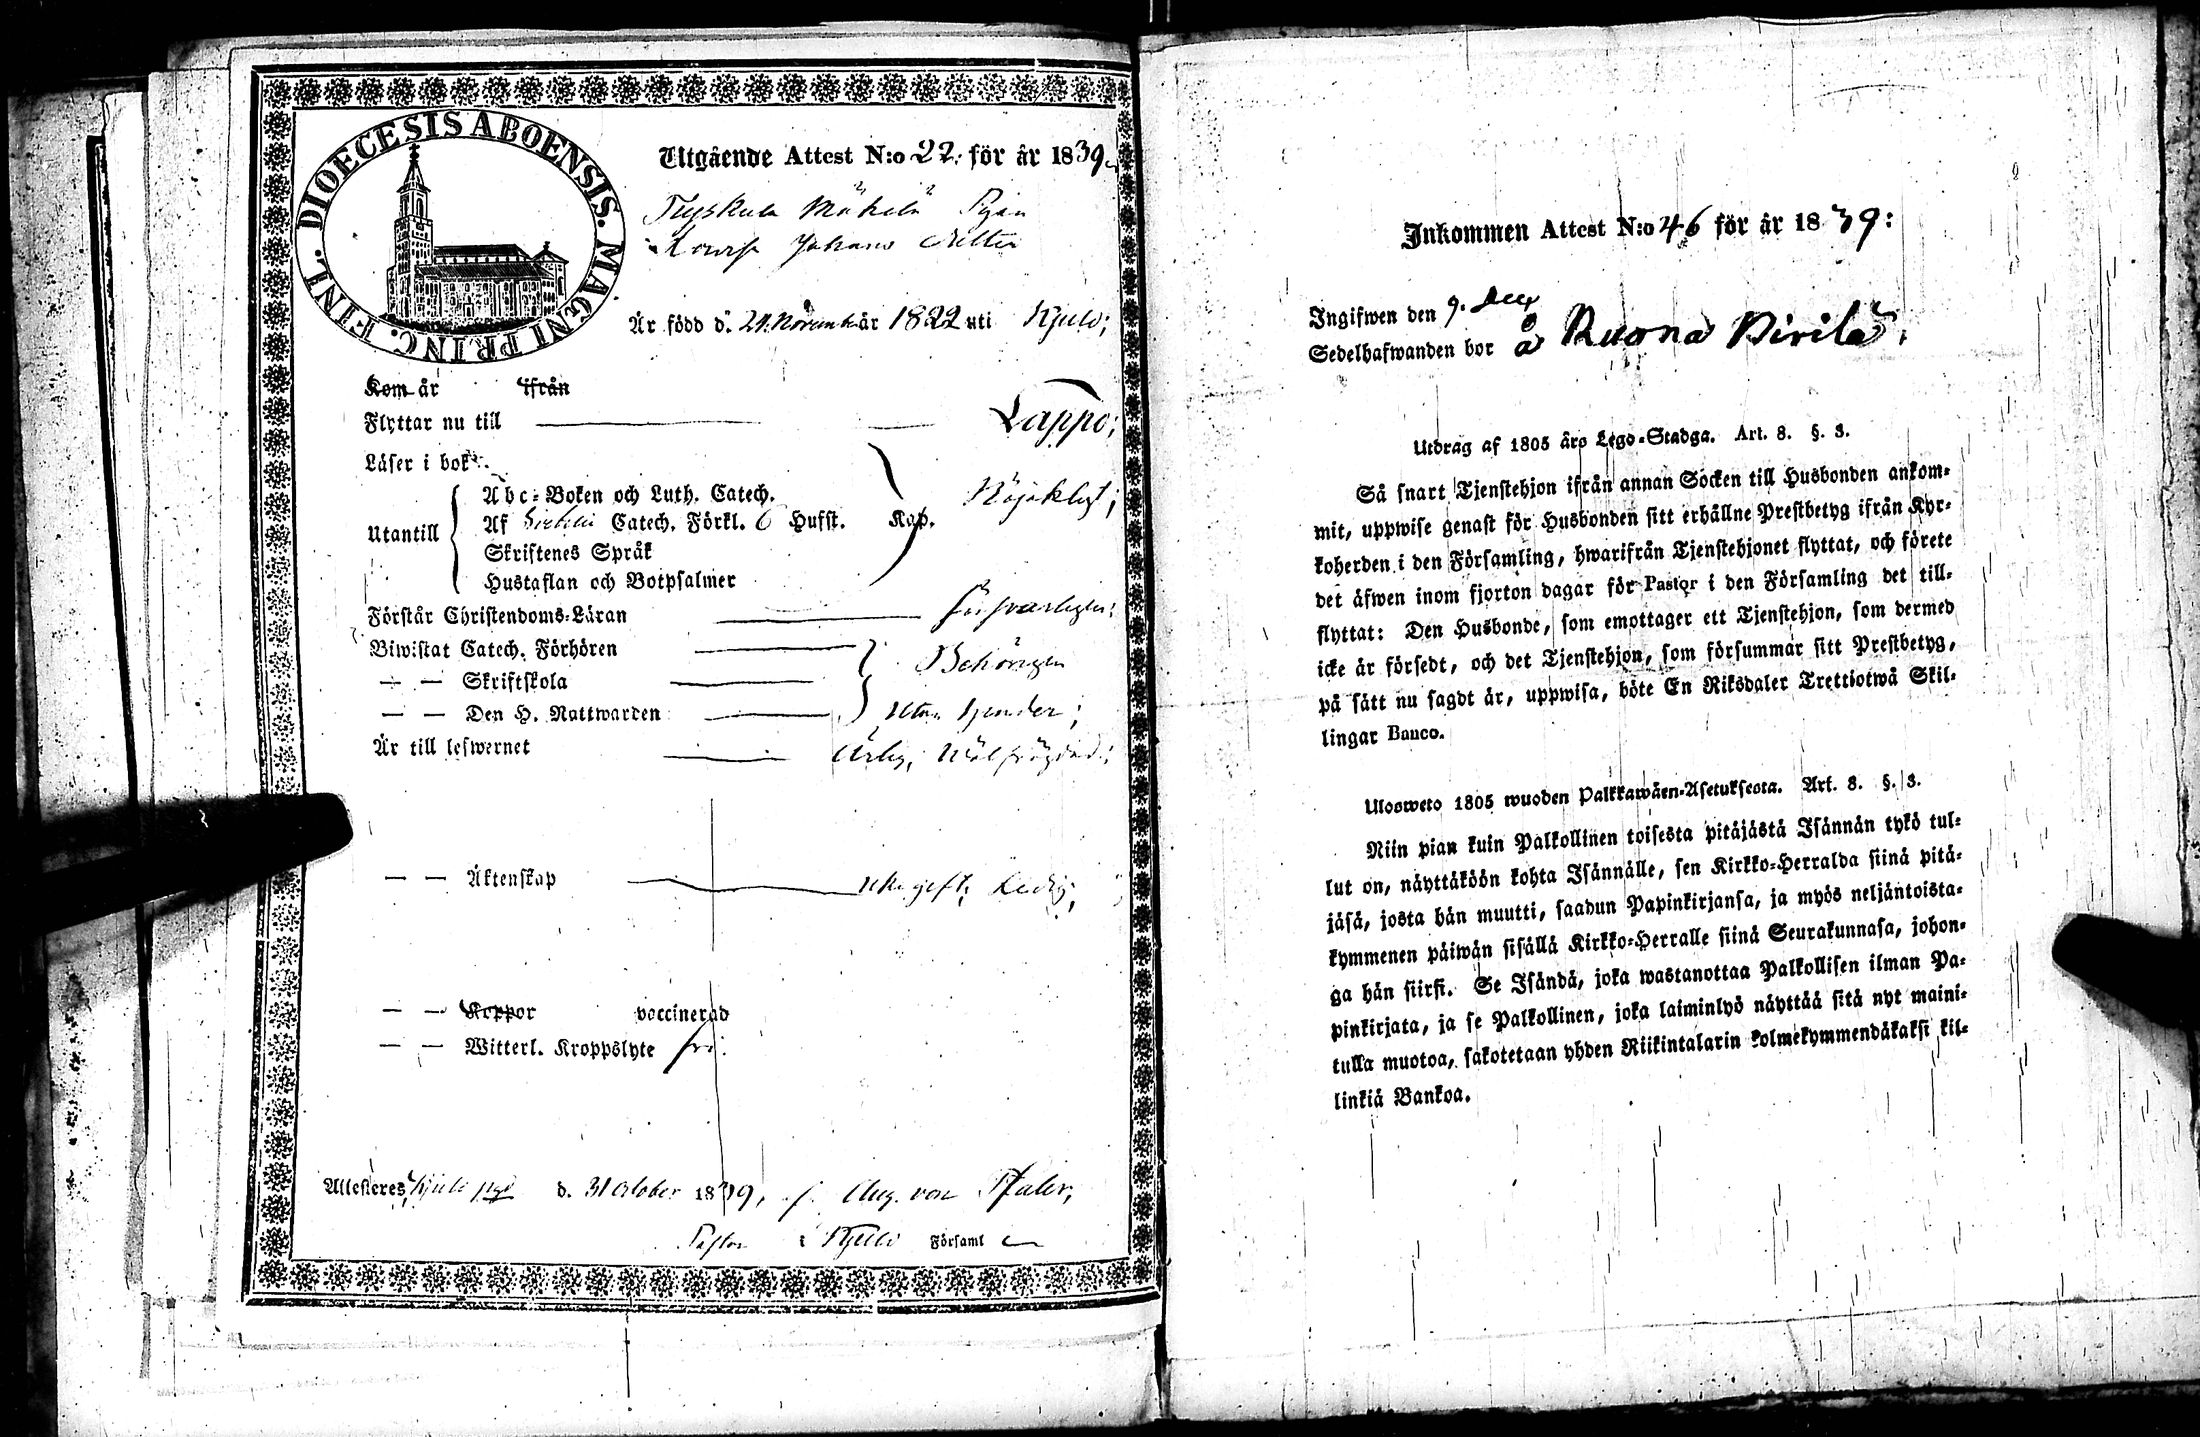 DIOECESIS ABOENSIS. MAGNI PRINC. FINL.
Utgående Attest N:o 22. för år 1839.
Tyskula Mäkelä Pijan
Lovisa Johans dotter
Är född d. 24. Novemb. år 1822 uti Kjulo;
Kom år ifrån
Flyttar nu till Lappo;
Läser i bok
Utantill
Abc-Boken och Luth. Catech.
Af Catech. Förkl. 6 Hufst. Kap. Nöjakligt;
Skriftenes Språk
Hustaflan och Botpsalmer
Förstår Christendoms-Läran försvarligen;
Biwistat Catech. Förhören
— — Skriftskola Behörigen
— — Den H. Nattwarden utan hinder;
Är till lefwernet Ärlig, Wälfrägdad;
— — Äktenskap ogift, Ledig;
— — Koppor vaccinerad
— — Witterl. Kroppslyte fri.
Attesteras, Kjulo d. 31 October 1839, Aug. von Pfaler,
Pastor i Kjulo Församl
Inkommen Attest N:o 46 för år 1839:
Ingifwen den 9. Dec
Sedelhafwanden bor å Ruona Pirilä.
Utdrag af 1805 års Lego-Stadga. Art. 8. §. 3.
Så snart Tjenstehjon ifrån annan Socken till Husbonden ankom-
mit, uppwise genast för Husbonden sitt erhållne Prestbetyg ifrån Kyr-
koherden i den Församling, hwarifrån Tjenstehjonet flyttat, och förete
det äfwen inom fjorton dagar för Pastor i den Församling det till-
flyttat: Den Husbonde, som emottager ett Tjenstehjon, som dermed
icke är försedt, och det Tjenstehjon, som försummar sitt Prestbetyg,
på sätt nu sagdt är, uppwisa, böte En Riksdaler Trettiotwå Skil-
lingar Banco.
Ulosweto 1805 wuoden Palkkawäen-Asetuksesta. Art. 8. §. 3.
Niin pian kuin Palkollinen toisesta pitäjästä Isännän tykö tul-
lut on, näyttäköön kohta Isännälle, sen Kirkko-Herralda siinä pitä-
jäsä, josta hän muutti, saadun Papinkirjansa, ja myös neljäntoista-
kymmenen päiwän sisällä Kirkko-Herralle siinä Seurakunnasa, johon-
ga hän siirsi. Se Isändä, joka wastanottaa Palkollisen ilman Pa-
pinkirjata, ja se Palkollinen, joka laiminlyö näyttää sitä nyt maini-
tulla muotoa, sakotetaan yhden Riikintalarin kolmekymmendäkaksi kil-
linkiä Bankoa.